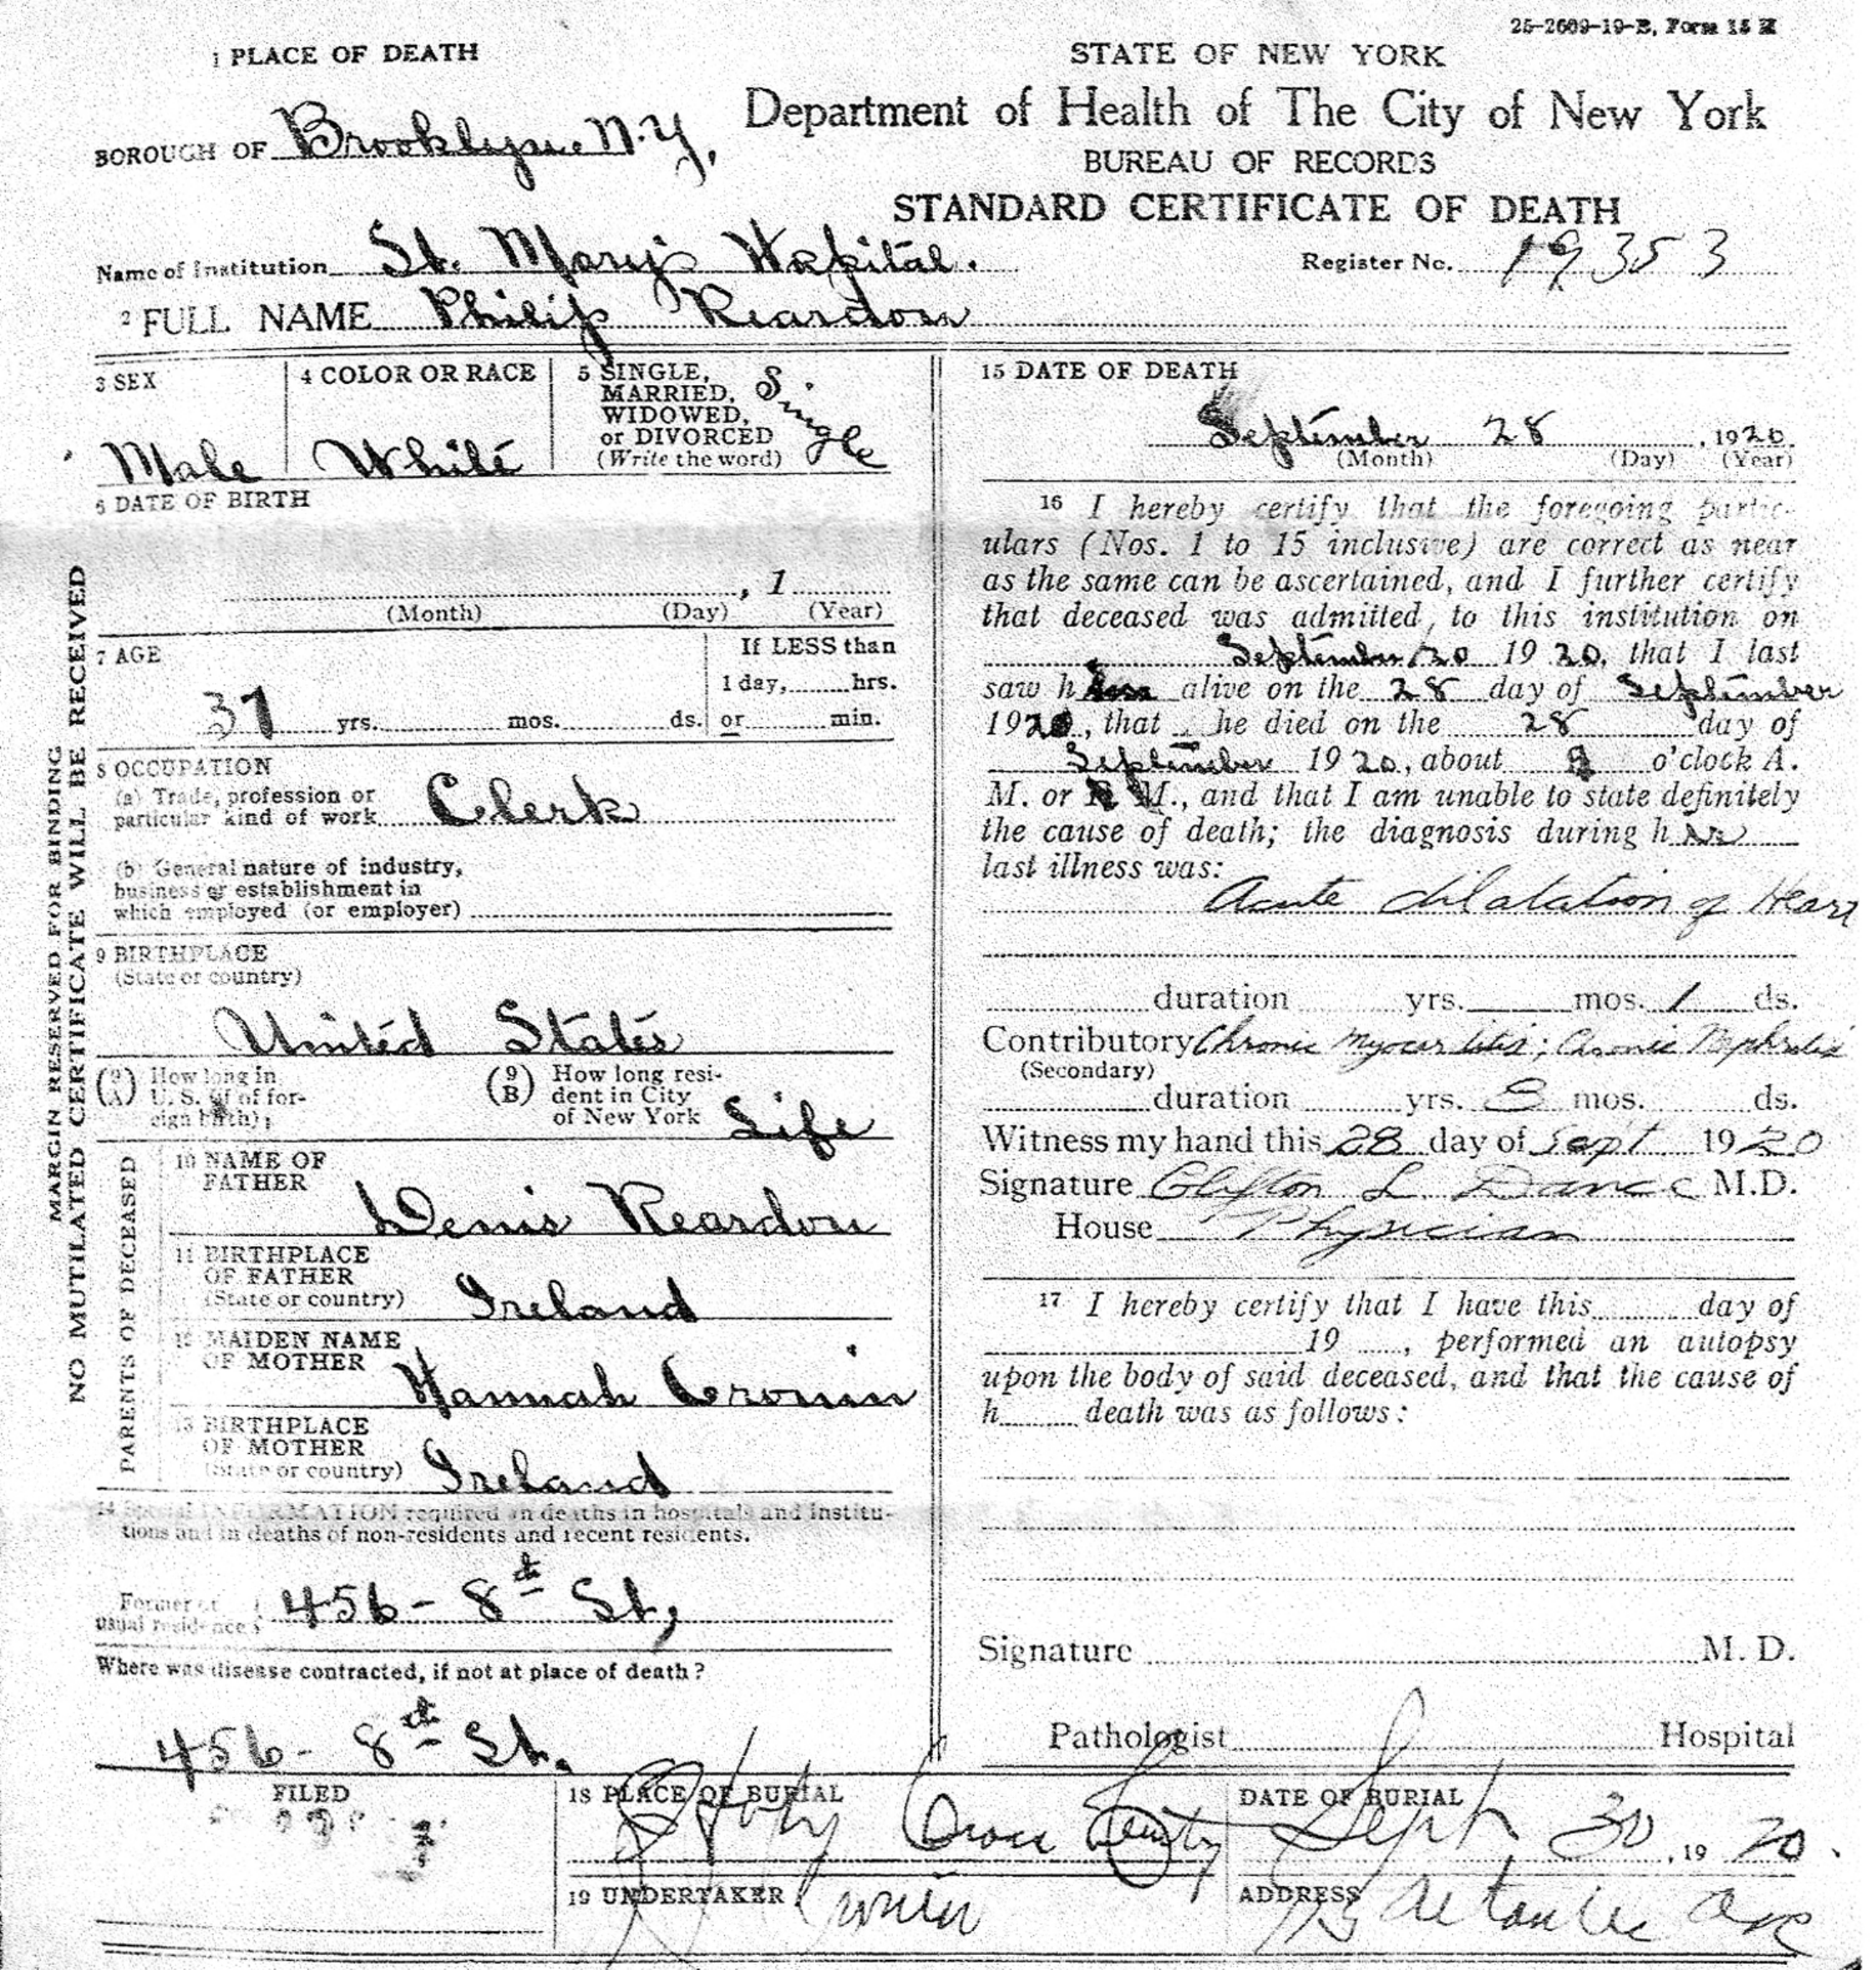 25-2609-19-B, Form 15 H
1 PLACE OF DEATH
STATE OF NEW YORK
Department of Health of The City of New York
BUREAU OF RECORDS
STANDARD CERTIFICATE OF DEATH
BOROUGH OF Brooklyn N.Y,
Name of Institution St. Mary's Hospital.
Register No. 19353
2 FULL NAME Philip Reardon
3 SEX
Male
4 COLOR OR RACE
White
5 SINGLE,
MARRIED,
WIDOWED,
or DIVORCED
(Write the word)
Single
6 DATE OF BIRTH
, 1
(Month) (Day) (Year)
7 AGE
37 yrs. mos. ds.
If LESS than
1 day, hrs.
or min.
8 OCCUPATION
(a) Trade, profession or
particular kind of work Clerk
(b) General nature of industry,
business or establishment in
which employed (or employer)
9 BIRTHPLACE
(State or country)
United States
(9 A) How long in
U. S. (if of for-
eign birth);
(9 B) How long resi-
dent in City
of New York Life
PARENTS OF DECEASED
10 NAME OF
FATHER
Denis Reardon
11 BIRTHPLACE
OF FATHER
(State or country) Ireland
12 MAIDEN NAME
OF MOTHER
Hannah Cronin
13 BIRTHPLACE
OF MOTHER
(State or country) Ireland
14 Special INFORMATION required in deaths in hospitals and institu-
tions and in deaths of non-residents and recent residents.
Former or
usual residence 456 - 8th St,
Where was disease contracted, if not at place of death?
456 - 8th St.
MARGIN RESERVED FOR BINDING
NO MUTILATED CERTIFICATE WILL BE RECEIVED
15 DATE OF DEATH
September 28, 1920.
(Month) (Day) (Year)
16 I hereby certify that the foregoing partic-
ulars (Nos. 1 to 15 inclusive) are correct as near
as the same can be ascertained, and I further certify
that deceased was admitted to this institution on
September 20 1920, that I last
saw him alive on the 28 day of September
1920, that he died on the 28 day of
September 1920, about o'clock A.
M. or P. M., and that I am unable to state definitely
the cause of death; the diagnosis during his
last illness was:
Acute dilatation of Heart
duration yrs. mos. 1 ds.
Contributory Chronic Myocarditis; Chronic Nephritis
(Secondary)
duration yrs. 8 mos. ds.
Witness my hand this 28 day of Sept 1920
Signature Clifton L. Dance M.D.
House Physician
17 I hereby certify that I have this day of
19 , performed an autopsy
upon the body of said deceased, and that the cause of
h death was as follows:
Signature M. D.
Pathologist Hospital
FILED
18 PLACE OF BURIAL
Holy Cross
DATE OF BURIAL
Sept. 30, 1920.
19 UNDERTAKER
Cronin
ADDRESS
Ave